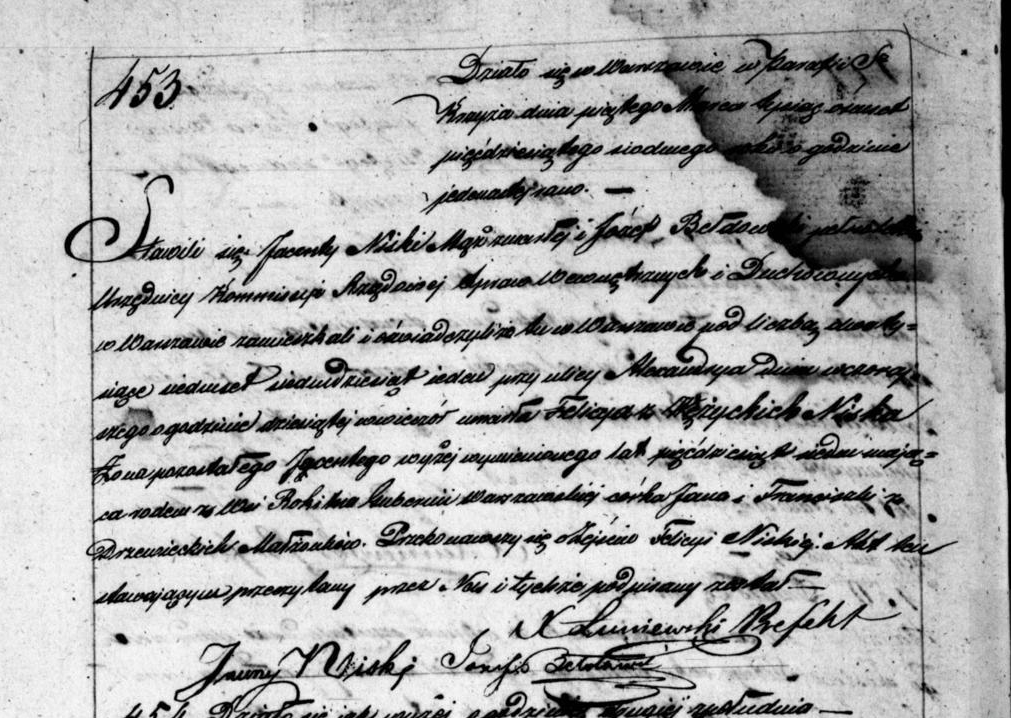 453
Działo się w Warszawie w Parafii Sgo
Krzyża dnia piątego Marca tysiąc ośmset
pięćdziesiątego siodmego roku o godzinie
jedenastej rano. —
Stawili się Jacenty Niski Mąż zmarłej i Józef pełnoletni
Urzędnicy Kommissyi Rządowej Spraw Wewnętrznych i Duchownych
w Warszawie zamieszkali i oświadczyli że tu w Warszawie pod liczbą dwa ty=
siące siedmset siedmdziesiąt jeden przy ulicy Alexandrya dnia wczoraj=
szego o godzinie dziesiątej wieczór umarła Felicya z Wężyckich Niska
Żona pozostałego Jacentego wyżej wymienionego lat pięćdziesiąt siedm mają=
ca rodem z Wsi Rokitna Gubernii Warszawskiej córka Jana i Franciszki z
Drzewieckich Małżonków. Przekonawszy się o Zejściu Felicyi Niskiej. Akt ten
stawającym przeczytany przez Nas i tychże podpisany został —
X Łuniewski Prefekt
Niski Józef
454 Działo się jak wyżej o godzinie drugiej z południa —